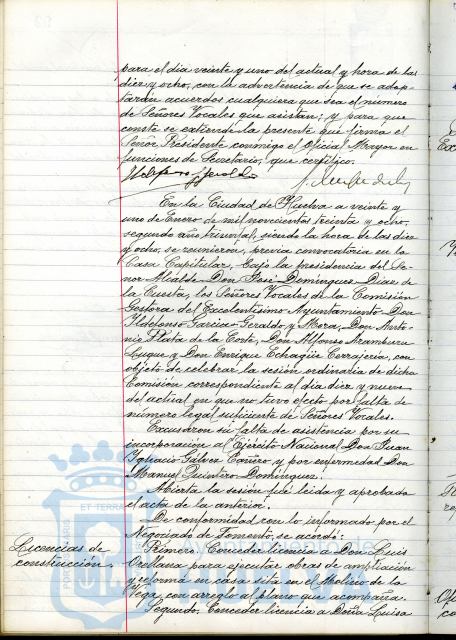 para el día veinte y uno del actual y hora de las
diez y ocho, con la advertencia de que se adop-
tarán acuerdos cualquiera que sea el número
de Señores Vocales que asistan; y para que
conste se extiende la presente que firma el
Señor Presidente conmigo el Oficial Mayor en
funciones de Secretario, que certifico.
En la Ciudad de Huelva a veinte y
uno de Enero de mil novecientos treinta y ocho,
segundo año triunfal, siendo la hora de las diez
y ocho, se reunieron, previa convocatoria en la
Casa Capitular, bajo la presidencia del Se-
ñor Alcalde Don José Domínguez Díaz de
la Cuesta, los Señores Vocales de la Comisión
Gestora del Excelentísimo Ayuntamiento Don
Ildefonso García Geraldo y Mera, Don Anto-
nio Plata de la Corte, Don Alfonso Aramburu
Luque y Don Enrique Echagüe Corrajería, con
objeto de celebrar la sesión ordinaria de dicha
Comisión correspondiente al día diez y nueve
del actual en que no tuvo efecto por falta de
número legal suficiente de Señores Vocales.
Excusaron su falta de asistencia por su
incorporación al Ejército Nacional Don Juan
Ignacio Gálvez Cañero y por enfermedad Don
Manuel Quintero Domínguez.
Abierta la sesión fué leída y aprobada
el acta de la anterior.
De conformidad con lo informado por el
Negociado de Fomento, se acordó:
Licencias de
construcción.
Primero. Conceder licencia a Don Luis
Orellana para ejecutar obras de ampliación
y reforma en casa sita en el Molino de la
Vega, con arreglo al plano que acompaña.
Segundo. Conceder licencia a Doña Luisa
ET TERRA